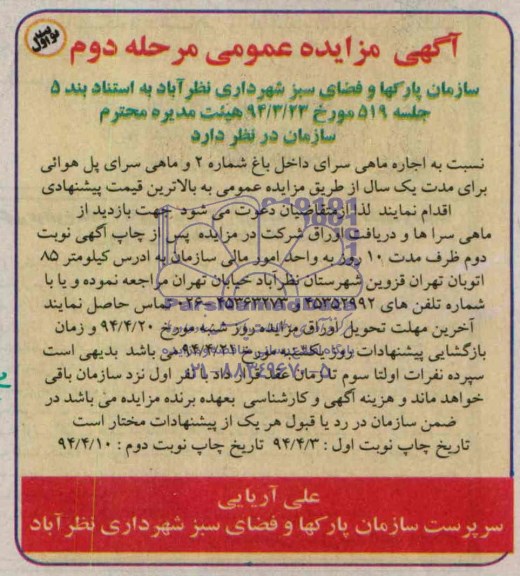 نوبت اول
آگهی مزایده عمومی مرحله دوم
سازمان پارکها و فضای سبز شهرداری نظرآباد به استناد بند ۵
جلسه ۵۱۹ مورخ ۹۴/۳/۲۳ هیئت مدیره محترم
سازمان در نظر دارد
نسبت به اجاره ماهی سرای داخل باغ شماره ۲ و ماهی سرای پل هوائی
برای مدت یک سال از طریق مزایده عمومی به بالاترین قیمت پیشنهادی
اقدام نمایند لذا ازمتقاضیان دعوت می شود جهت بازدید از
ماهی سرا ها و دریافت اوراق شرکت در مزایده پس از چاپ آگهی نوبت
دوم ظرف مدت ۱۰ روز به واحد امور مالی سازمان به ادرس کیلومتر ۸۵
اتوبان تهران قزوین شهرستان نظرآباد خیابان تهران مراجعه نموده و یا با
شماره تلفن های ۴۵۳۵۲۹۹۲ و ۴۵۳۶۳۲۷۳-۰۲۶ تماس حاصل نمایند
آخرین مهلت تحویل اوراق مزایده روز شنبه مورخ ۹۴/۴/۲۰ و زمان
بازگشایی پیشنهادات روز یکشنبه مورخ ۹۴/۴/۲۱ می باشد بدیهی است
سپرده نفرات اول تا سوم تا زمان عقد قرار داد با نفر اول نزد سازمان باقی
خواهد ماند و هزینه آگهی و کارشناسی بعهده برنده مزایده می باشد در
ضمن سازمان در رد یا قبول هر یک از پیشنهادات مختار است
تاریخ چاپ نوبت اول : ۹۴/۴/۳ تاریخ چاپ نوبت دوم : ۹۴/۴/۱۰
علی آریایی
سرپرست سازمان پارکها و فضای سبز شهرداری نظرآباد